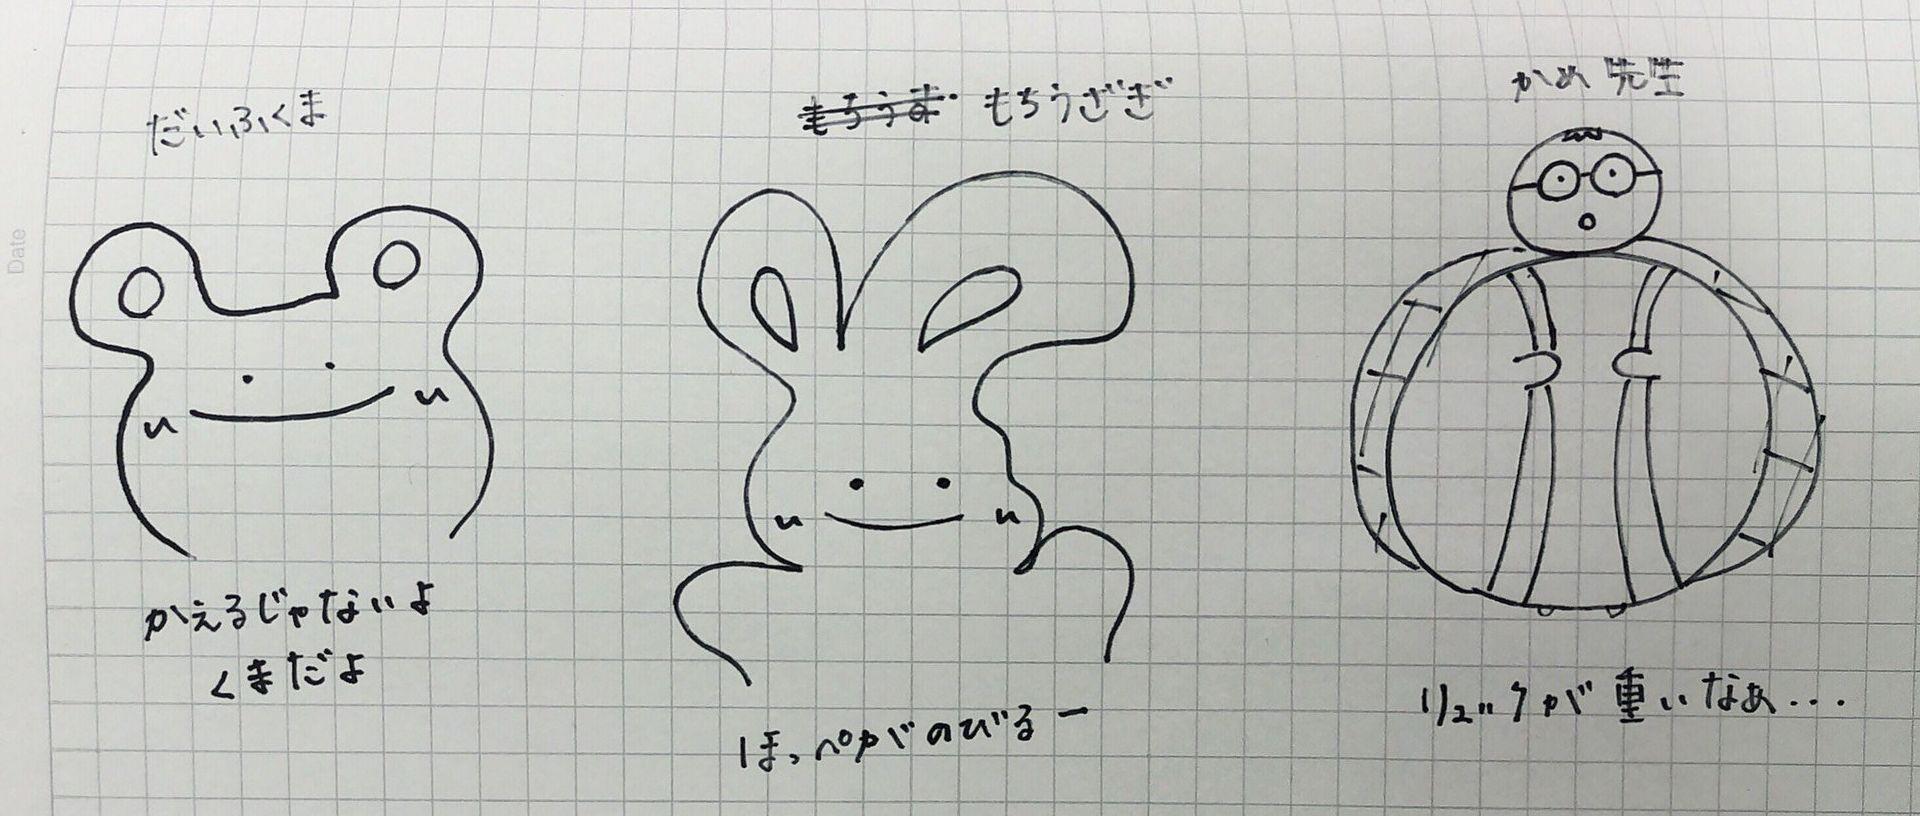 Date
だいふくま
かえるじゃないよ
くまだよ
もちうざぎ
ほっぺがのびるー
かめ先生
リュックが重いなぁ...